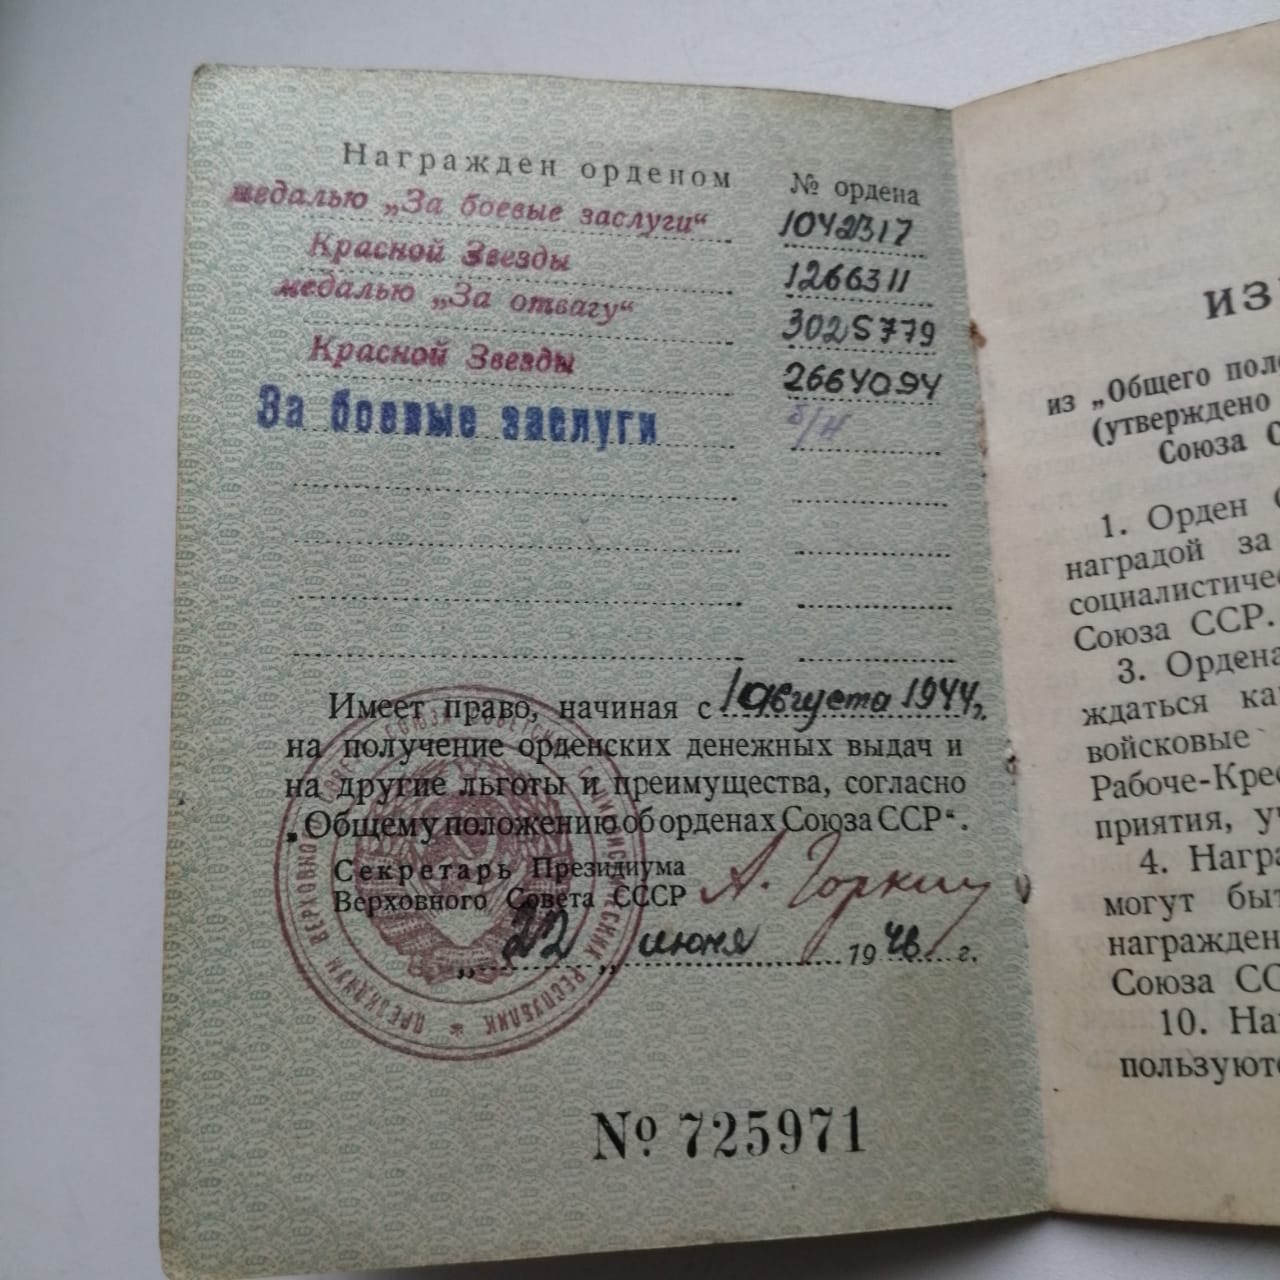 Награжден орденом № ордена
медалью „За боевые заслуги“ 1042317
Красной Звезды 1266311
медалью „За отвагу“ 3025779
Красной Звезды 2664094
За боевые заслуги б/н
Имеет право, начиная с 1 августа 1944 г.
на получение орденских денежных выдач и
на другие льготы и преимущества, согласно
„Общему положению об орденах Союза ССР“.
Секретарь Президиума
Верховного Совета СССР А. Горкин
„22„ июня 1946 г.
ПРЕЗИДИУМ ВЕРХОВНОГО СОВЕТА СОЮЗА СОВЕТСКИХ СОЦИАЛИСТИЧЕСКИХ РЕСПУБЛИК *
№ 725971
ИЗ
из „Общего поло
(утверждено
Союза С
1. Орден С
наградой за
социалистичес
Союза ССР.
3. Ордена
ждаться ка
войсковые
Рабоче-Крес
приятия, уч
4. Награ
могут быт
награжден
Союза СС
10. На
пользуютс